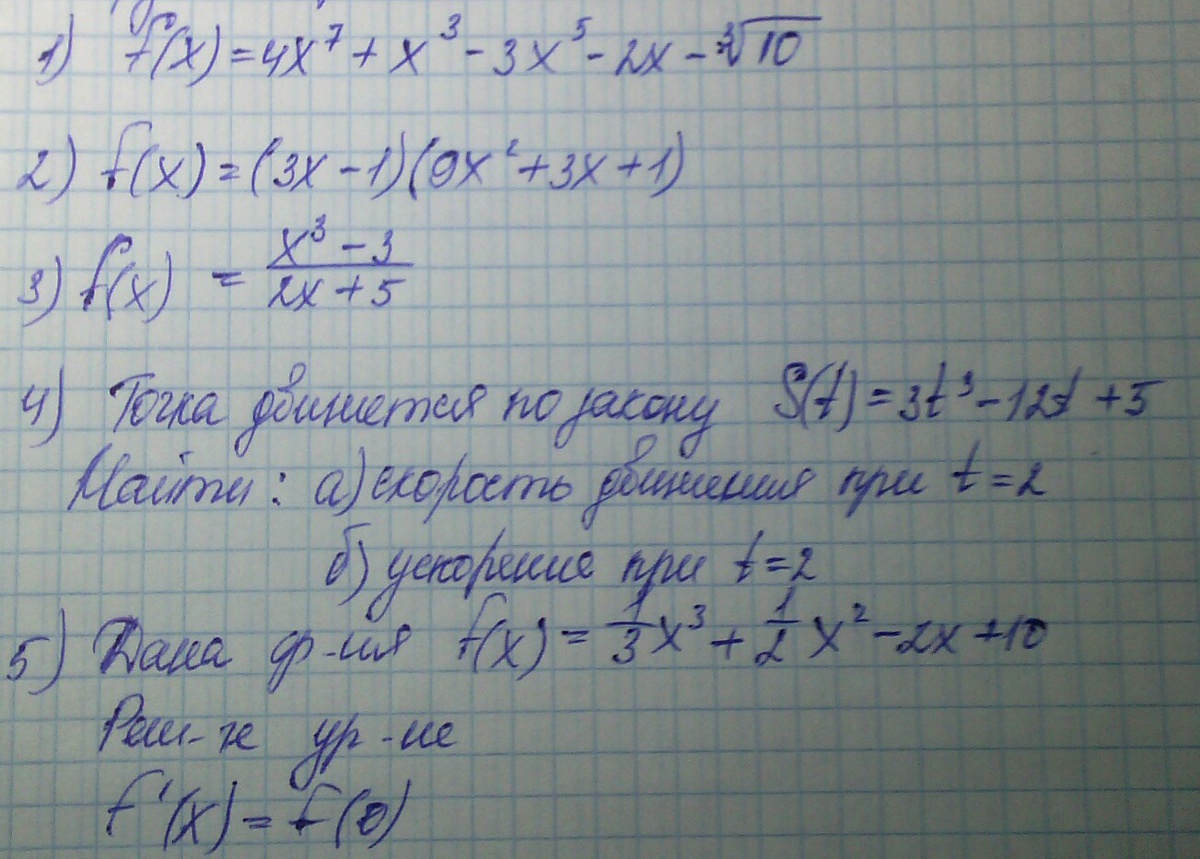 1) f(x) = 4x⁷ + x³ - 3x⁵ - 2x - ³√10
2) f(x) = (3x - 1)(9x² + 3x + 1)
3) f(x) = (x³ - 3)/(2x + 5)
4) Точка движется по закону S(t) = 3t³ - 12t + 5
Найти: а) скорость движения при t = 2
б) ускорение при t = 2
5) Дана ф-ия f(x) = 1/3 x³ + 1/2 x² - 2x + 10
Реш-те ур-ие
f'(x) = f(0)